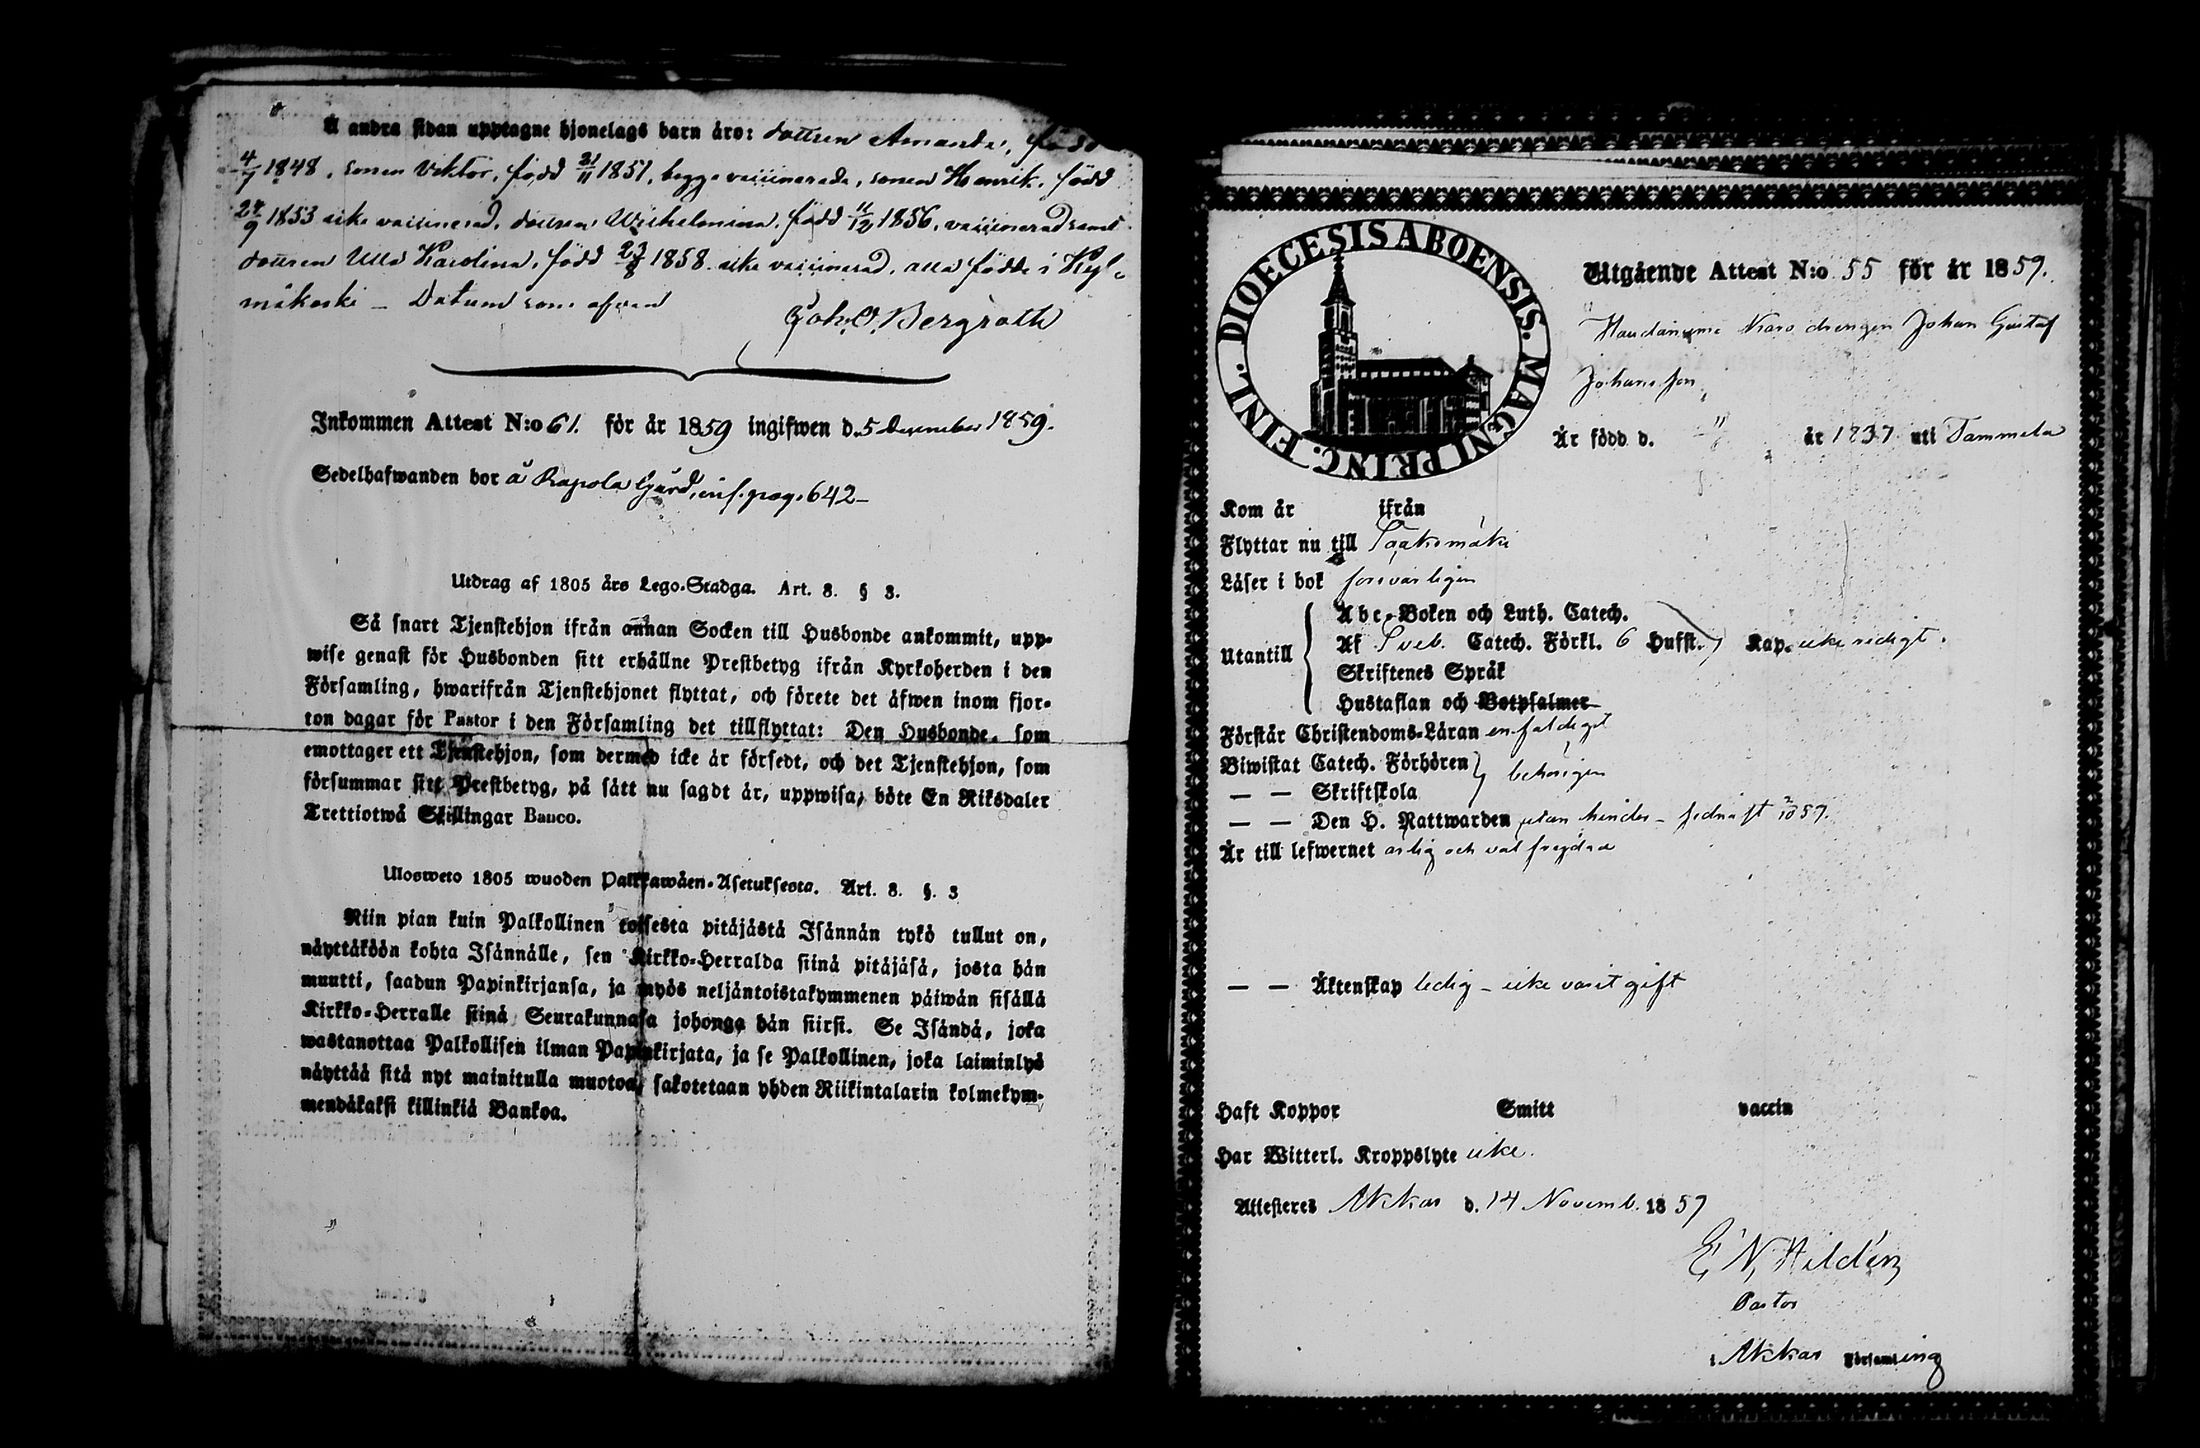 Å andra sidan upptagne hjonelags barn äro: dottren Amanda, född
4/7 1848, sonen Viktor, född 21/11 1851, begge vaccinerade, sonen Henrik, född
24/9 1853 icke vaccinerad, dottren Wilhelmina, född 11/12 1856, vaccinerad samt
dottren Ulla Karolina, född 23/8 1858 icke vaccinerad, alla födde i Kyl-
mäkoski — Datum som ofvan
Joh. O. Bergroth
Inkommen Attest N:o 61. för år 1859 ingifwen d. 5 december 1859.
Sedelhafwanden bor å Rapola Gård, inf. pag. 642—
Utdrag af 1805 års Lego-Stadga. Art. 8. § 3.
Så snart Tjenstehjon ifrån annan Socken till Husbonde ankommit, upp-
wise genast för Husbonden sitt erhållne Prestbetyg ifrån Kyrkoherden i den
Församling, hwarifrån Tjenstehjonet flyttat, och förete det äfwen inom fjor-
ton dagar för Pastor i den Församling det tillflyttat: Den Husbonde, som
emottager ett Tjenstehjon, som dermed icke är försedt, och det Tjenstehjon, som
försummar sitt Prestbetyg, på sätt nu sagdt är, uppwisa, böte En Riksdaler
Trettiotwå Skillingar Banco.
Ulosweto 1805 wuoden Palkkawäen-Asetuksesta. Art. 8. §. 3
Niin pian kuin Palkollinen toisesta pitäjästä Isännän tykö tullut on,
näyttäköön kohta Isännälle, sen Kirkko-Herralda siinä pitäjäsä, josta hän
muutti, saadun Papinkirjansa, ja myös neljäntoistakymmenen päiwän sisällä
Kirkko-Herralle siinä Seurakunnasa johonga hän siirsi. Se Isändä, joka
wastanottaa Palkollisen ilman Papinkirjata, ja se Palkollinen, joka laiminlyö
näyttää sitä nyt mainitulla muotoa, sakotetaan yhden Riikintalarin kolmekym-
mendäkaksi killinkiä Bankoa.
DIOECESIS ABOENSIS. MAGNI PRINC. FINL.
Utgående Attest N:o 55 för år 1859.
drengen Johan Gustaf
Johansson
Är född d. 11/6 år 1837 uti Tammela
Kom år ifrån
Flyttar nu till Sääksmäki
Läser i bok försvarligen
Abc-Boken och Luth. Catech.
Utantill Af Sveb. Catech. Förkl. 6 Hufst. Kap. icke redigt.
Skriftenes Språk
Hustaflan och Botpsalmer
Förstår Christendoms-Läran enfaldigt
Biwistat Catech. Förhören behörigen
— — Skriftskola
— — Den H. Nattwarden utan hinder — sednast 2/10 59.
Är till lefwernet ärlig och väl frejdad
— — Äktenskap ledig — icke varit gift
Haft Koppor Smitt vaccin
Har Witterl. Kroppslyte icke.
Attesteres Akkas d. 14 Novemb. 1859
E. N. Hildén
Pastor
i Akkas Församling